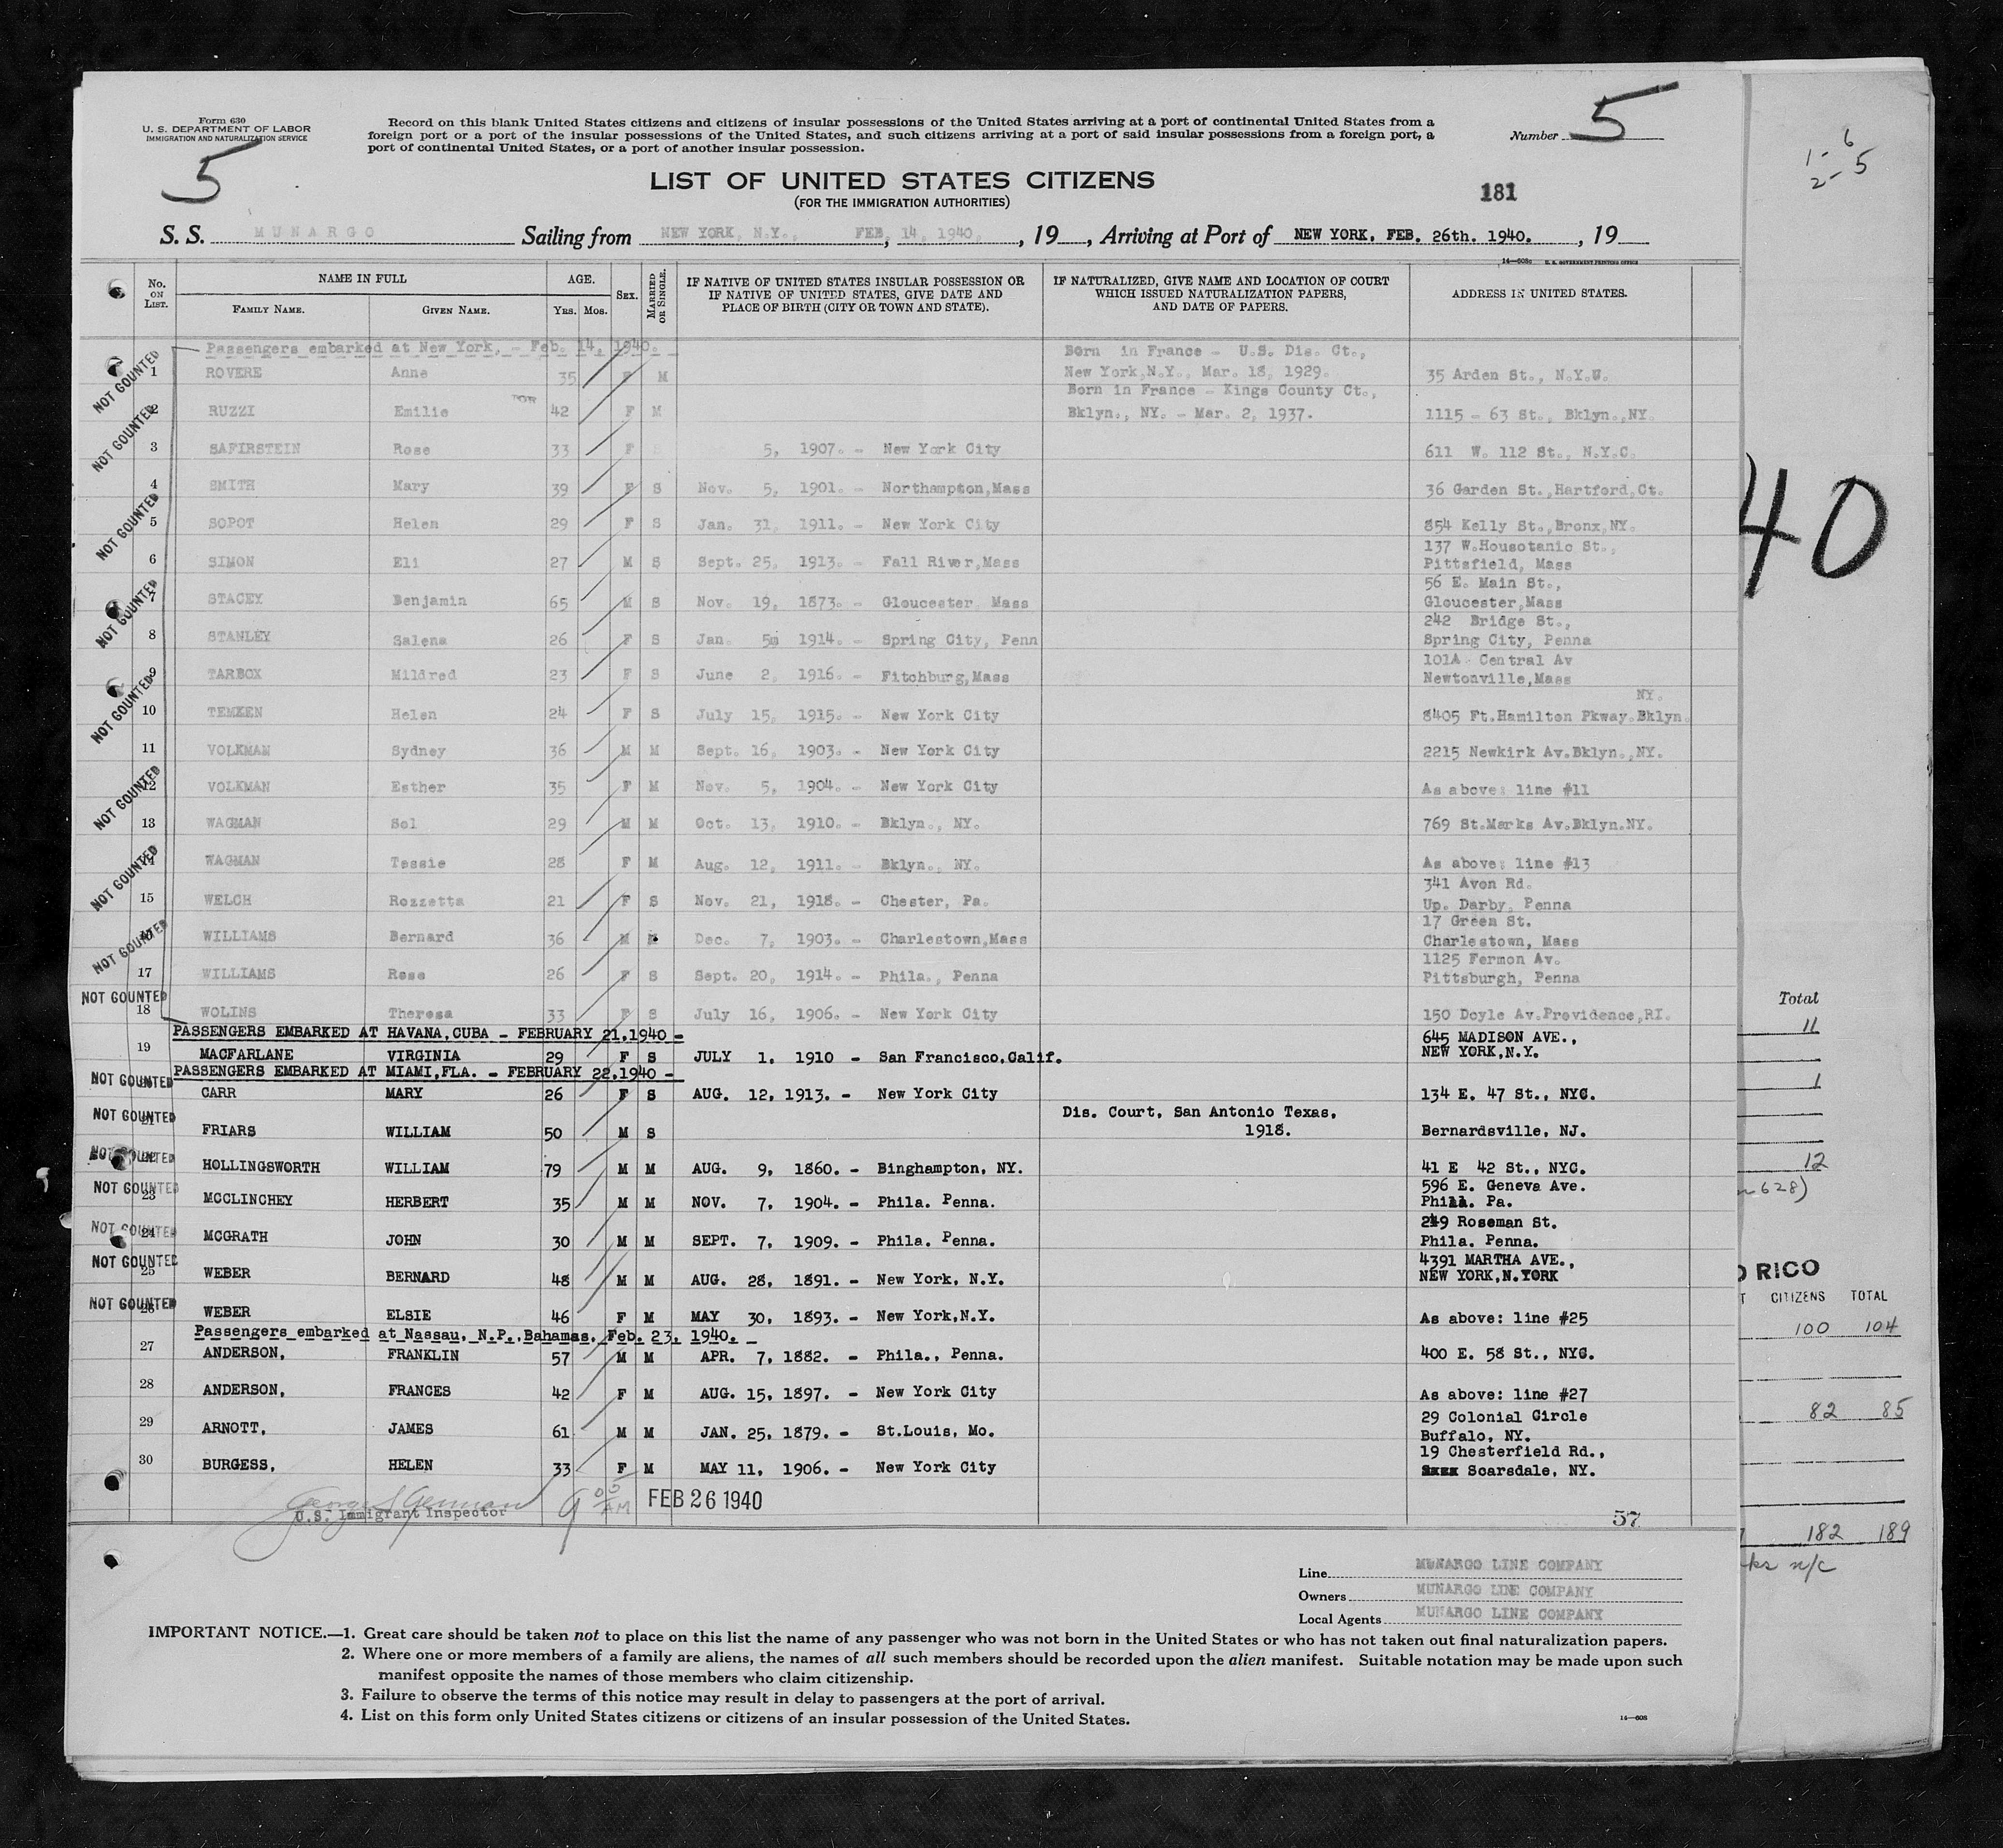 Form 630
U. S. DEPARTMENT OF LABOR
IMMIGRATION AND NATURALIZATION SERVICE
5
Record on this blank United States citizens and citizens of insular possessions of the United States arriving at a port of continental United States from a
foreign port or a port of the insular possessions of the United States, and such citizens arriving at a port of said insular possessions from a foreign port, a
port of continental United States, or a port of another insular possession.
Number 5
1- 6
2- 5
LIST OF UNITED STATES CITIZENS
(FOR THE IMMIGRATION AUTHORITIES)
181
S. S. MUNARGO Sailing from NEW YORK, N.Y., FEB. 14, 1940, 19 , Arriving at Port of NEW YORK, FEB. 26th. 1940. , 19
14—608c U. S. GOVERNMENT PRINTING OFFICE
No. ON LIST. NAME IN FULL FAMILY NAME. GIVEN NAME. AGE. YRS. MOS. SEX. MARRIED OR SINGLE. IF NATIVE OF UNITED STATES INSULAR POSSESSION OR IF NATIVE OF UNITED STATES, GIVE DATE AND PLACE OF BIRTH (CITY OR TOWN AND STATE). IF NATURALIZED, GIVE NAME AND LOCATION OF COURT WHICH ISSUED NATURALIZATION PAPERS, AND DATE OF PAPERS. ADDRESS IN UNITED STATES.
Passengers embarked at New York, - Feb. 14, 1940.
Born in France - U.S. Dis. Ct.,
NOT COUNTED 1 ROVERE Anne 35 F M New York,N.Y., Mar. 18, 1929. 35 Arden St., N.Y.
Born in France - Kings County Ct.,
NOT COUNTED 2 RUZZI Emilie 42 F M Bklyn., NY. - Mar. 2, 1937. 1115 - 63 St., Bklyn.,NY.
3 SAFIRSTEIN Rose 33 F 5, 1907. - New York City 611 W. 112 St., N.Y.C.
4 SMITH Mary 39 F S Nov. 5, 1901. - Northampton,Mass 36 Garden St.,Hartford,Ct.
NOT COUNTED 5 SOPOT Helen 29 F S Jan. 31, 1911. - New York City 854 Kelly St.,Bronx,NY.
137 W.Housotanic St.,
6 SIMON Eli 27 M S Sept. 25, 1913. - Fall River,Mass Pittsfield, Mass
56 E. Main St.,
NOT COUNTED 7 STACEY Benjamin 65 M S Nov. 19, 1873. - Gloucester Mass Gloucester,Mass
242 Bridge St.,
8 STANLEY Salena 26 F S Jan. 5, 1914. - Spring City, Penn Spring City, Penna
101A Central Av
NOT COUNTED 9 TARBOX Mildred 23 F S June 2, 1916. - Fitchburg,Mass Newtonville,Mass
NY.
10 TEMKEN Helen 24 F S July 15, 1915. - New York City 8405 Ft.Hamilton Pkway.Bklyn.
11 VOLKMAN Sydney 36 M M Sept. 16, 1903. - New York City 2215 Newkirk Av.Bklyn.,NY.
NOT COUNTED 12 VOLKMAN Esther 35 F M Nov. 5, 1904. - New York City As above: line #11
13 WAGMAN Sol 29 M M Oct. 13, 1910. - Bklyn., NY. 769 St.Marks Av.Bklyn.NY.
NOT COUNTED 14 WAGMAN Tessie 28 F M Aug. 12, 1911. - Bklyn., NY. As above: line #13
341 Avon Rd.
15 WELCH Rozzetta 21 F S Nov. 21, 1918. - Chester, Pa. Up. Darby, Penna
17 Green St.
NOT COUNTED 16 WILLIAMS Bernard 36 M Dec. 7, 1903. - Charlestown,Mass Charlestown, Mass
1125 Fermon Av.
17 WILLIAMS Rose 26 F S Sept. 20, 1914. - Phila., Penna Pittsburgh, Penna
NOT COUNTED
18 WOLINS Theresa 33 F S July 16, 1906. - New York City 150 Doyle Av.Providence,RI.
PASSENGERS EMBARKED AT HAVANA,CUBA - FEBRUARY 21,1940 -
645 MADISON AVE.,
19 MACFARLANE VIRGINIA 29 F S JULY 1, 1910 - San Francisco,Calif. NEW YORK,N.Y.
PASSENGERS EMBARKED AT MIAMI,FLA. - FEBRUARY 22,1940 -
NOT COUNTED CARR MARY 26 F S AUG. 12, 1913. - New York City 134 E. 47 St., NYC.
Dis. Court, San Antonio Texas,
NOT COUNTED 21 FRIARS WILLIAM 50 M S 1918. Bernardsville, NJ.
NOT COUNTED 22 HOLLINGSWORTH WILLIAM 79 M M AUG. 9, 1860. - Binghampton, NY. 41 E 42 St., NYC.
596 E. Geneva Ave.
NOT COUNTED 23 MCCLINCHEY HERBERT 35 M M NOV. 7, 1904. - Phila. Penna. Phila. Pa.
249 Roseman St.
NOT COUNTED 24 MCGRATH JOHN 30 M M SEPT. 7, 1909. - Phila. Penna. Phila. Penna.
4391 MARTHA AVE.,
NOT COUNTED 25 WEBER BERNARD 48 M M AUG. 28, 1891. - New York, N.Y. NEW YORK,N.YORK
NOT COUNTED 26 WEBER ELSIE 46 F M MAY 30, 1893. - New York,N.Y. As above: line #25
Passengers embarked at Nassau, N.P.,Bahamas, Feb. 23, 1940. -
27 ANDERSON, FRANKLIN 57 M M APR. 7, 1882. - Phila., Penna. 400 E. 58 St., NYC.
28 ANDERSON, FRANCES 42 F M AUG. 15, 1897. - New York City As above: line #27
29 Colonial Circle
29 ARNOTT, JAMES 61 M M JAN. 25, 1879. - St.Louis, Mo. Buffalo, NY.
19 Chesterfield Rd.,
30 BURGESS, HELEN 33 F M MAY 11, 1906. - New York City Scarsdale, NY.
U.S. Immigrant Inspector
9 05 AM
FEB 26 1940
57
Line MUNARGO LINE COMPANY
Owners MUNARGO LINE COMPANY
Local Agents MUNARGO LINE COMPANY
IMPORTANT NOTICE.—1. Great care should be taken not to place on this list the name of any passenger who was not born in the United States or who has not taken out final naturalization papers.
2. Where one or more members of a family are aliens, the names of all such members should be recorded upon the alien manifest. Suitable notation may be made upon such
manifest opposite the names of those members who claim citizenship.
3. Failure to observe the terms of this notice may result in delay to passengers at the port of arrival.
4. List on this form only United States citizens or citizens of an insular possession of the United States.
14—608
40
Total
11
1
12
628)
RICO
CITIZENS TOTAL
100 104
82 85
182 189
n/c